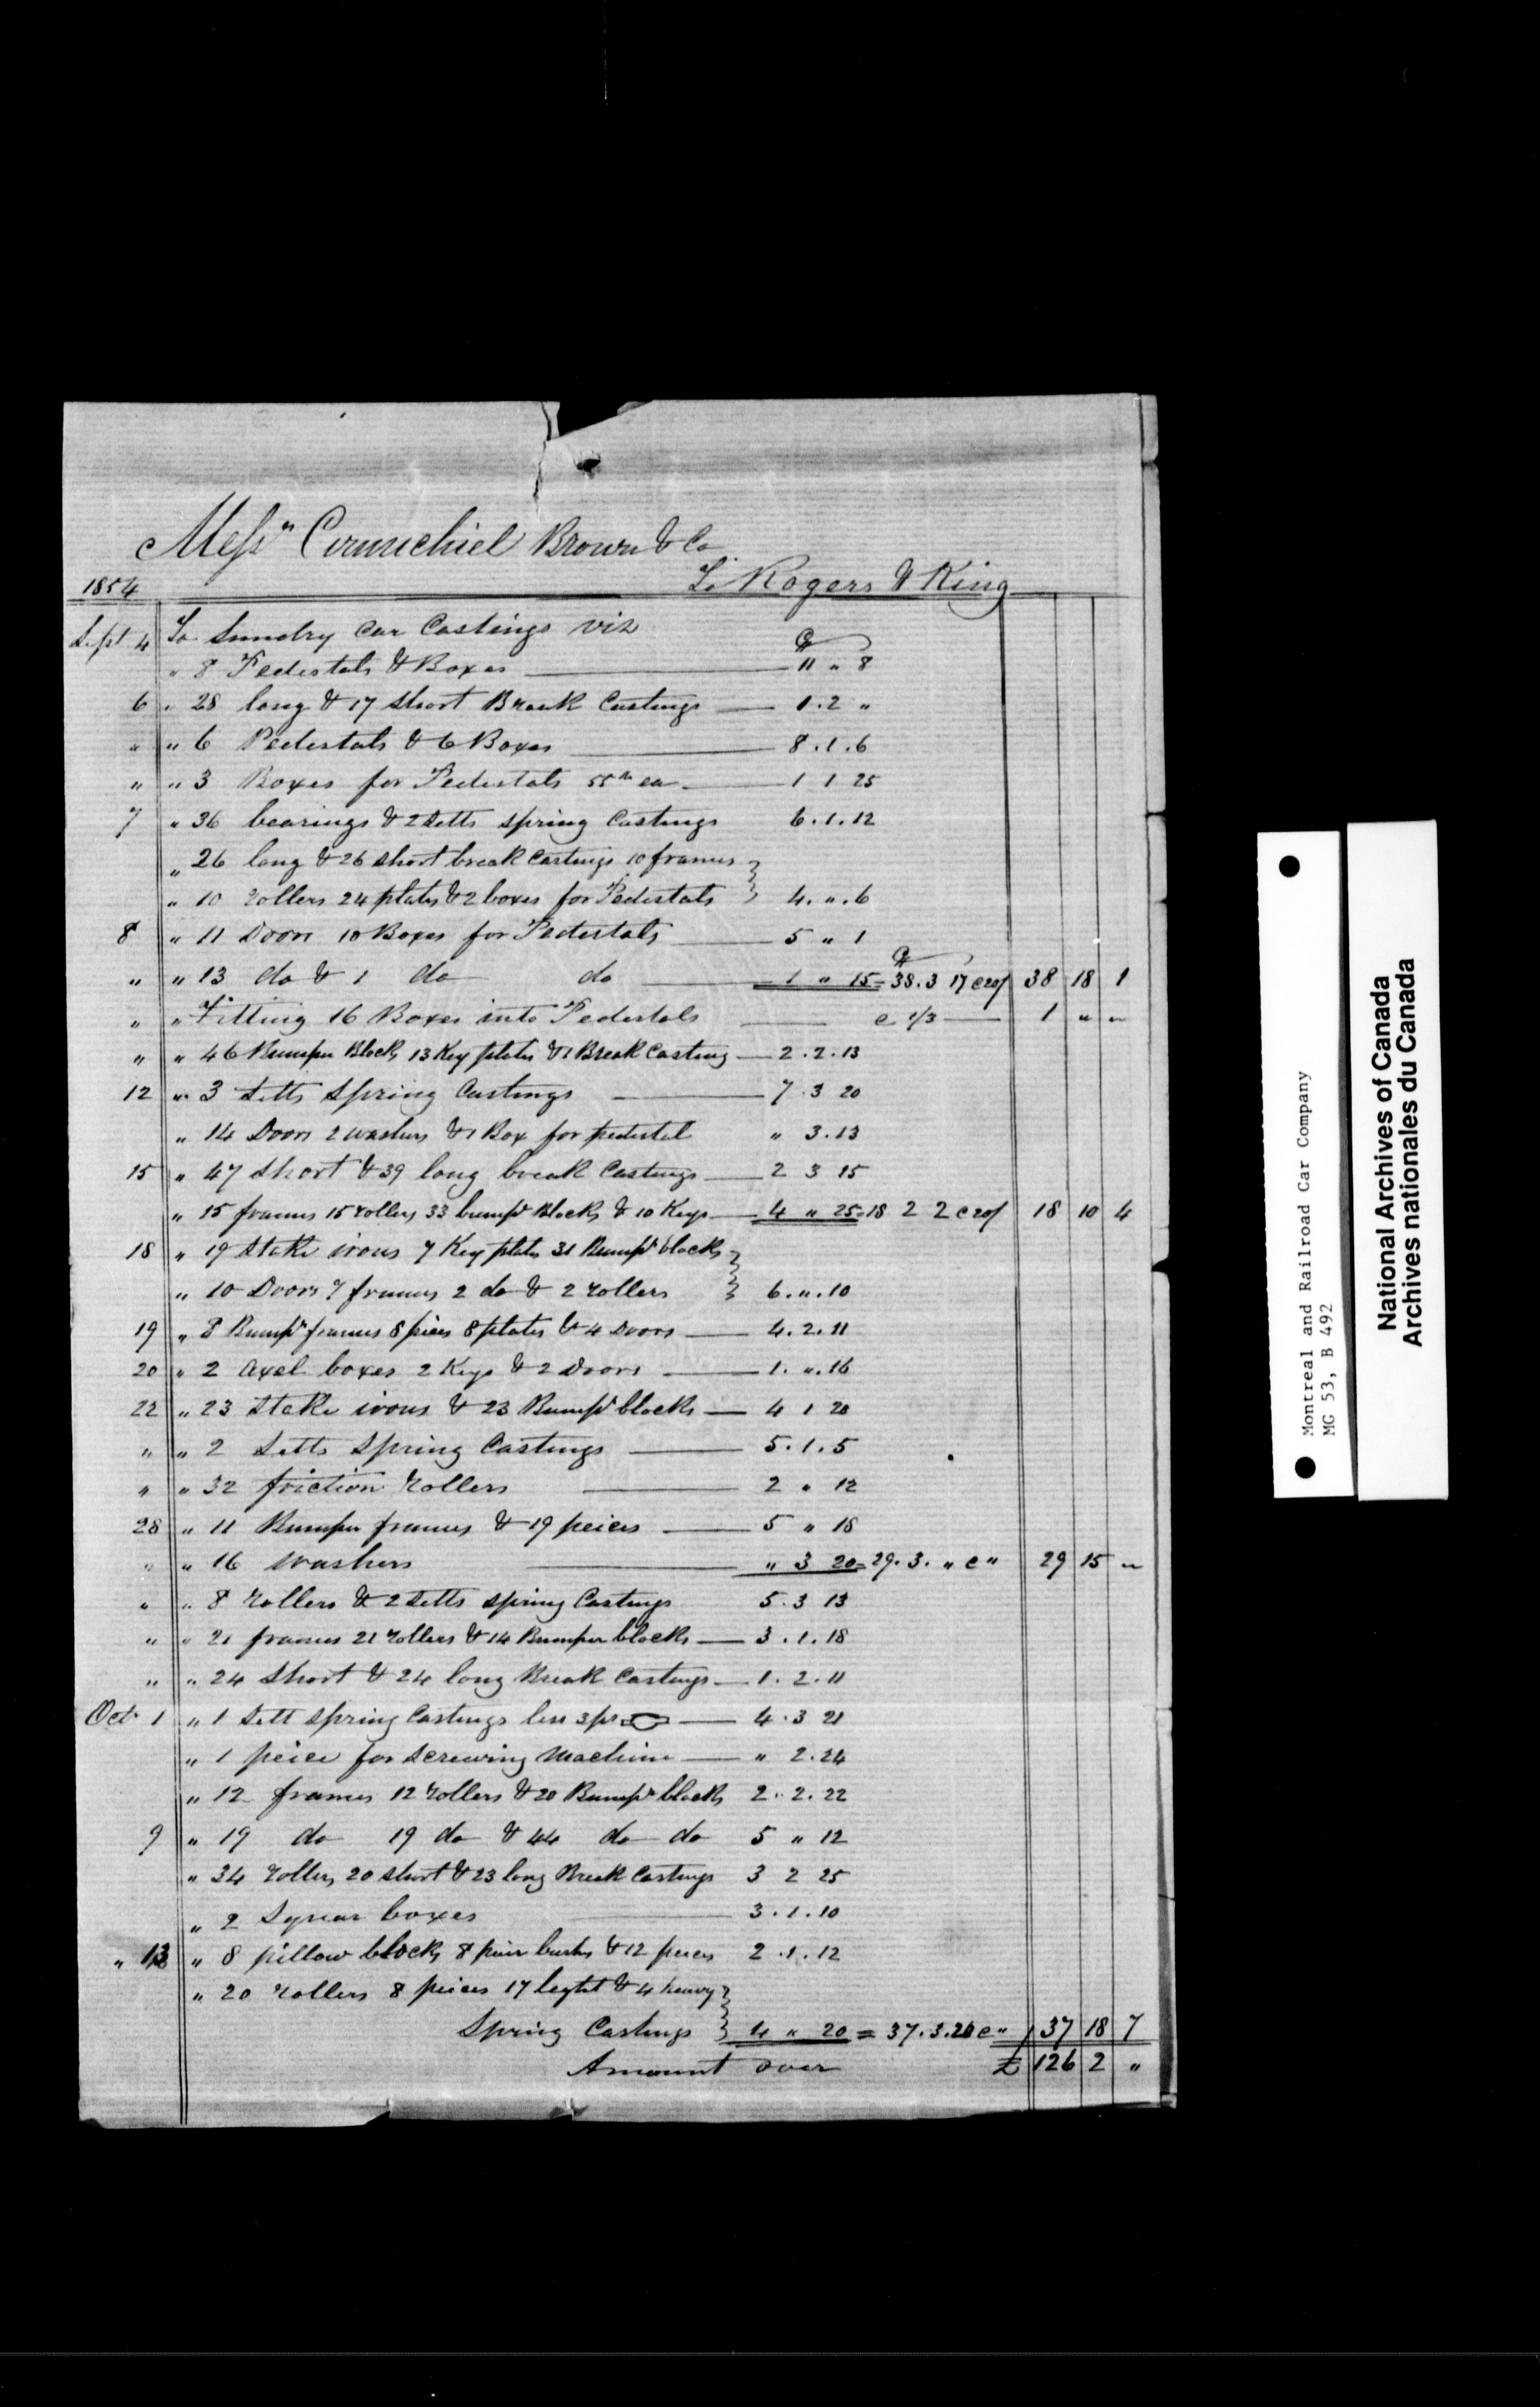 Messrs Carmichiel Brown & Co
1854 To Rogers & King
Sept 4 To Sundry Car Castings viz
" 8 Pedestals & Boxes 11 " 8
6 " 28 long & 17 short Break Castings 1.2 "
" " 6 Pedestals & 6 Boxes 8.1.6
" " 3 Boxes for Pedestals 55 lb ea 1 1 25
7 " 36 bearings & 2 Setts spring Castings 6.1.12
" 26 long & 26 short break Castings 10 frames
" 10 rollers 24 plates & 2 boxes for Pedestals 4.".6
8 " 11 Doors 10 Boxes for Pedestals 5 " 1
" " 13 do & 1 do do 1 " 15 = 38.3 17 @ 20/ 38 18 1
" " Fitting 16 Boxes into Pedestals @ 1/3 1 " "
" " 46 Bumper Blocks 13 Key plates & 1 Break Casting 2.2.13
12 " 3 Setts Spring Castings 7.3 20
" 14 Doors 2 washers & 1 Box for pedestal " 3.13
15 " 47 Short & 39 long break Castings 2 3 15
" 15 frames 15 rollers 33 bumpr Blocks & 10 Keys 4 " 25 = 18 2 2 @ 20/ 18 10 4
18 " 19 Stake irons 7 Key plates 31 Bumpr blocks
" 10 Doors 7 frames 2 do & 2 rollers 6.".10
19 " 8 Bumpr frames 8 pieces 8 plates & 4 Doors 4.2.11
20 " 2 Axel boxes 2 Keys & 2 Doors 1.".16
22 " 23 Stake irons & 23 Bumpr blocks 4 1 20
" " 2 Setts Spring Castings 5.1.5
" " 32 friction rollers 2 " 12
28 " 11 Bumper frames & 19 peices 5 " 18
" " 16 washers " 3 20 = 29.3. " @ " 29 15 "
" " 8 rollers & 2 Setts spring Castings 5.3 13
" " 21 frames 21 rollers & 14 Bumper blocks 3.1.18
" " 24 Short & 24 long Break Castings 1.2.11
Oct 1 " 1 Sett Spring Castings less 3 pr 4.3 21
" 1 peice for Screwing Machine " 2.24
" 12 frames 12 rollers & 20 Bumpr blocks 2.2.22
9 " 19 do 19 do & 44 do do 5 " 12
" 34 rollers 20 short & 23 long Break Castings 3 2 25
" 2 boxes 3.1.10
" 13 " 8 pillow blocks 8 & 12 peices 2.1.12
" 20 rollers 8 pieces 17 leght & 4 heavy
Spring Castings 4 " 20 = 37.3.20 @ " 37 18 7
Amount over £ 126 2 "
Montreal and Railroad Car Company
MG 53, B 492
National Archives of Canada
Archives nationales du Canada